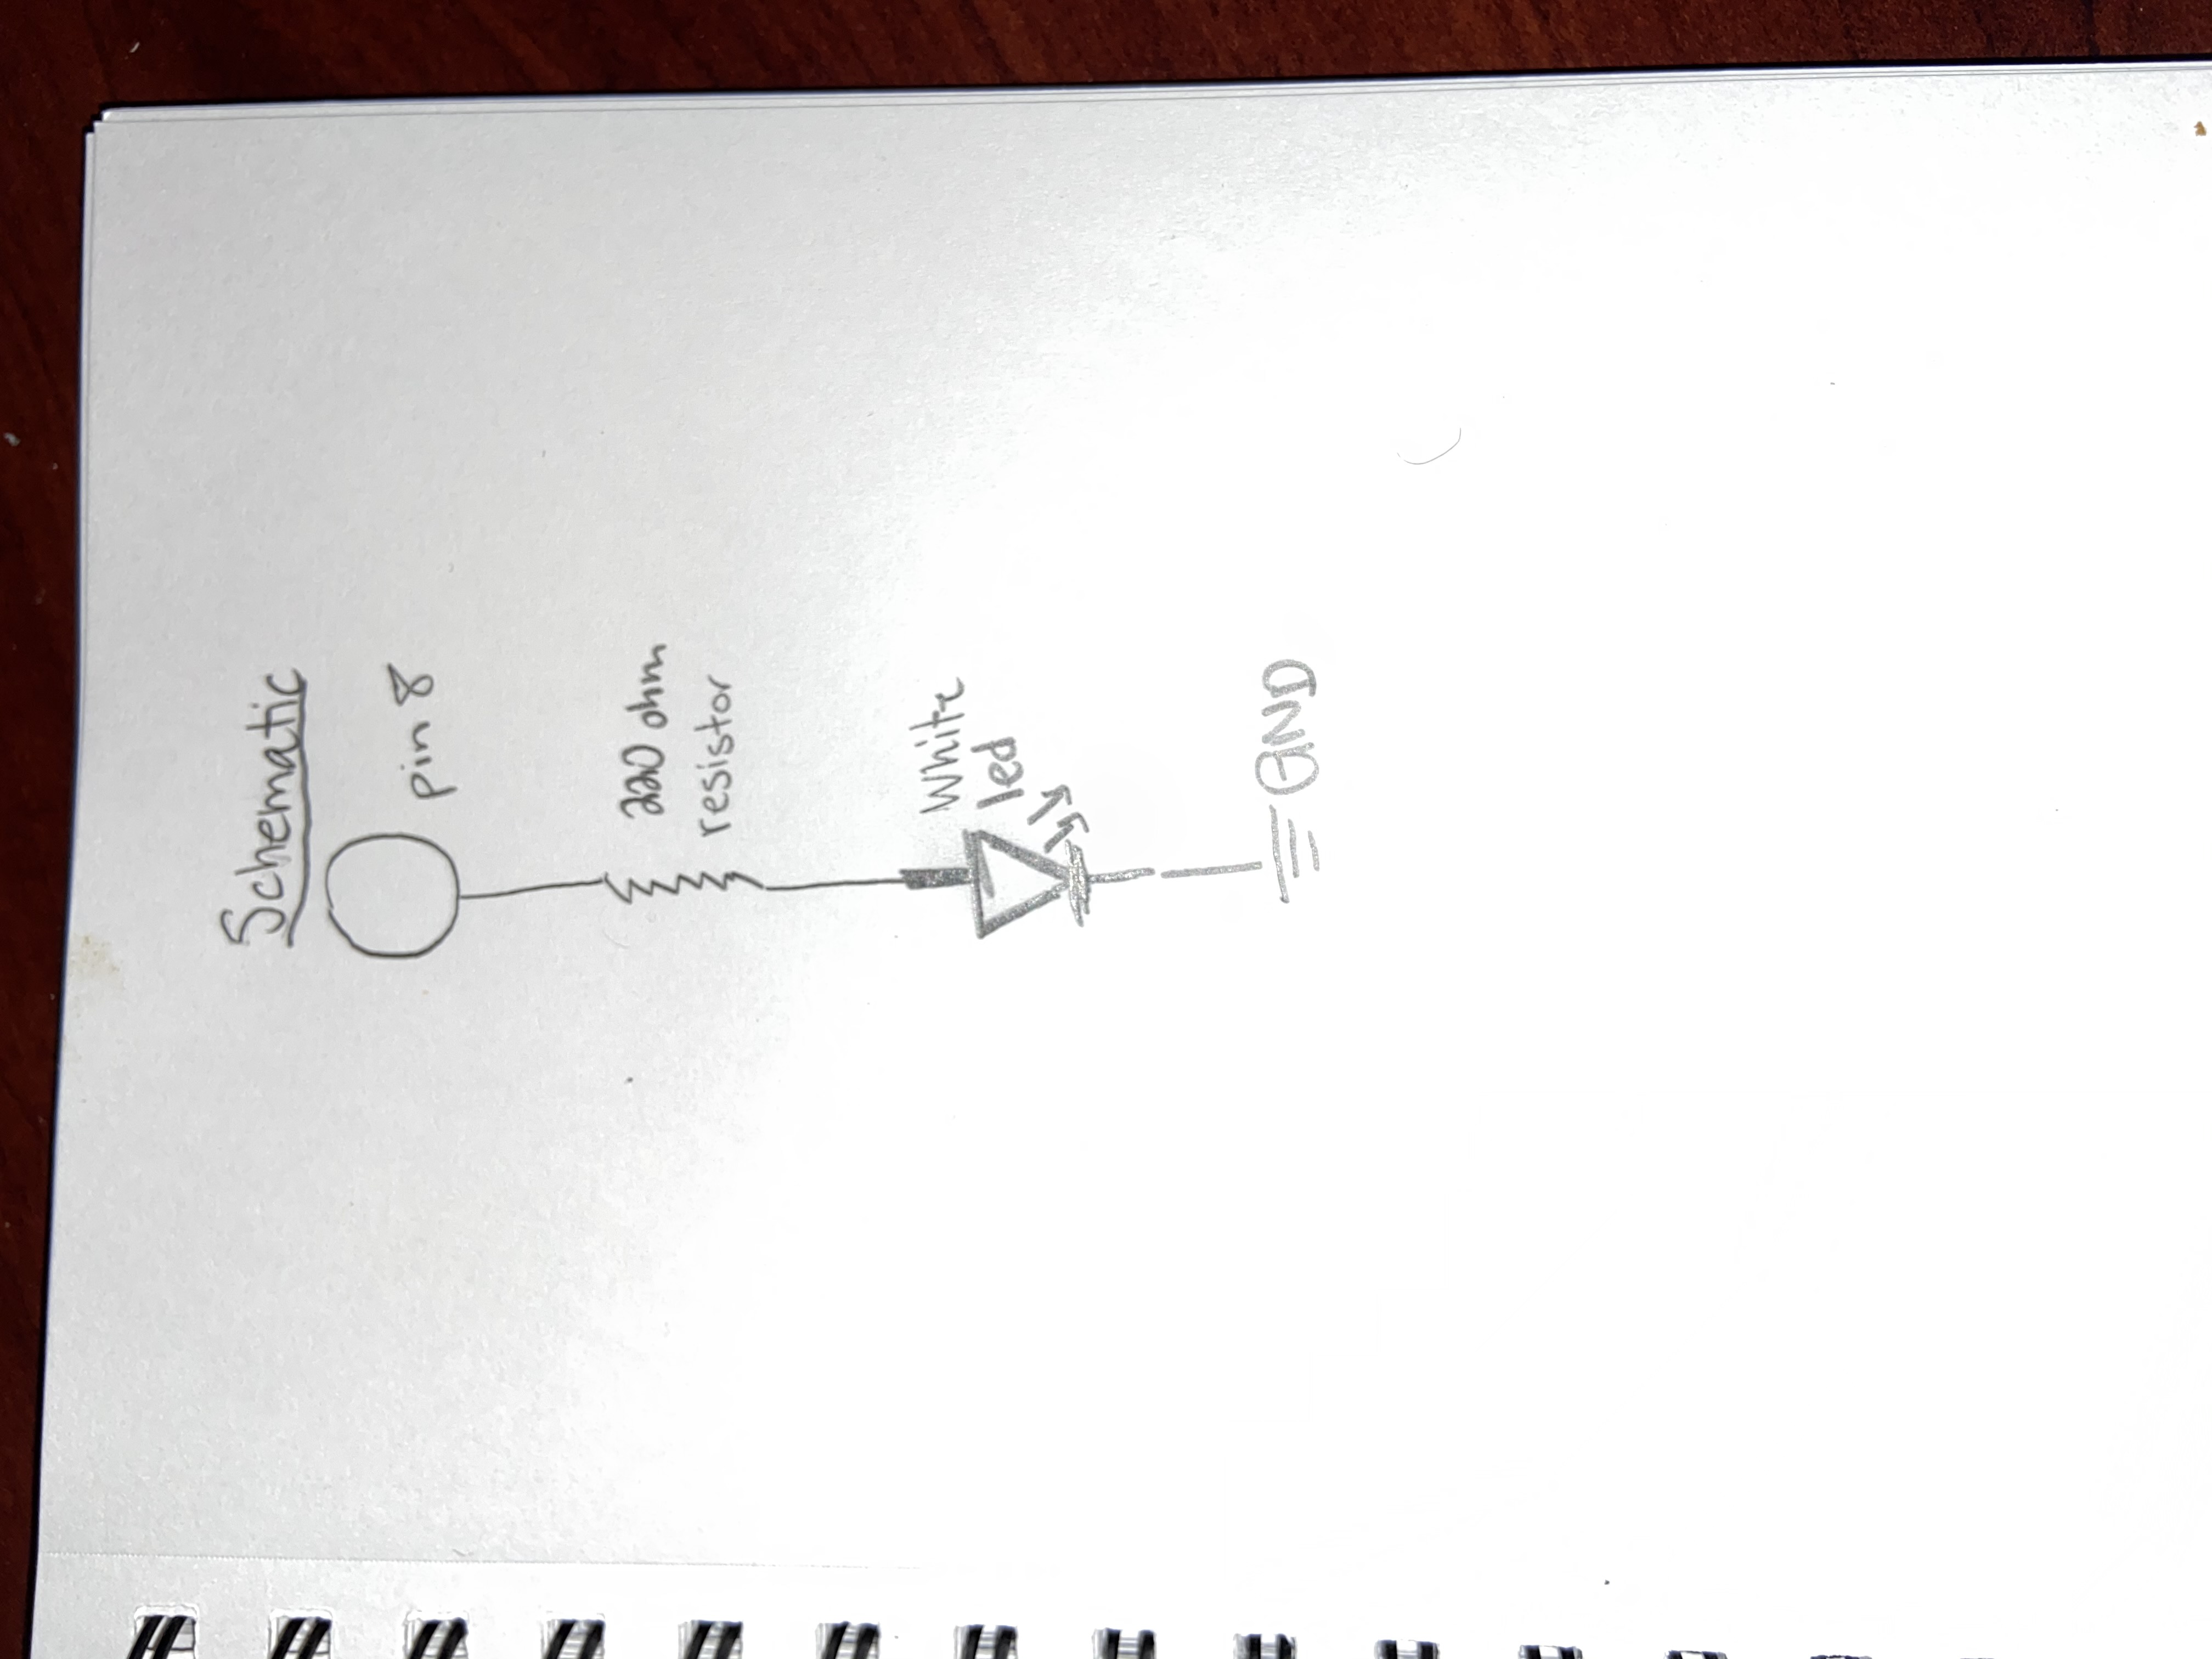 Schematic
pin 8
220 ohm
resistor
White
led
GND